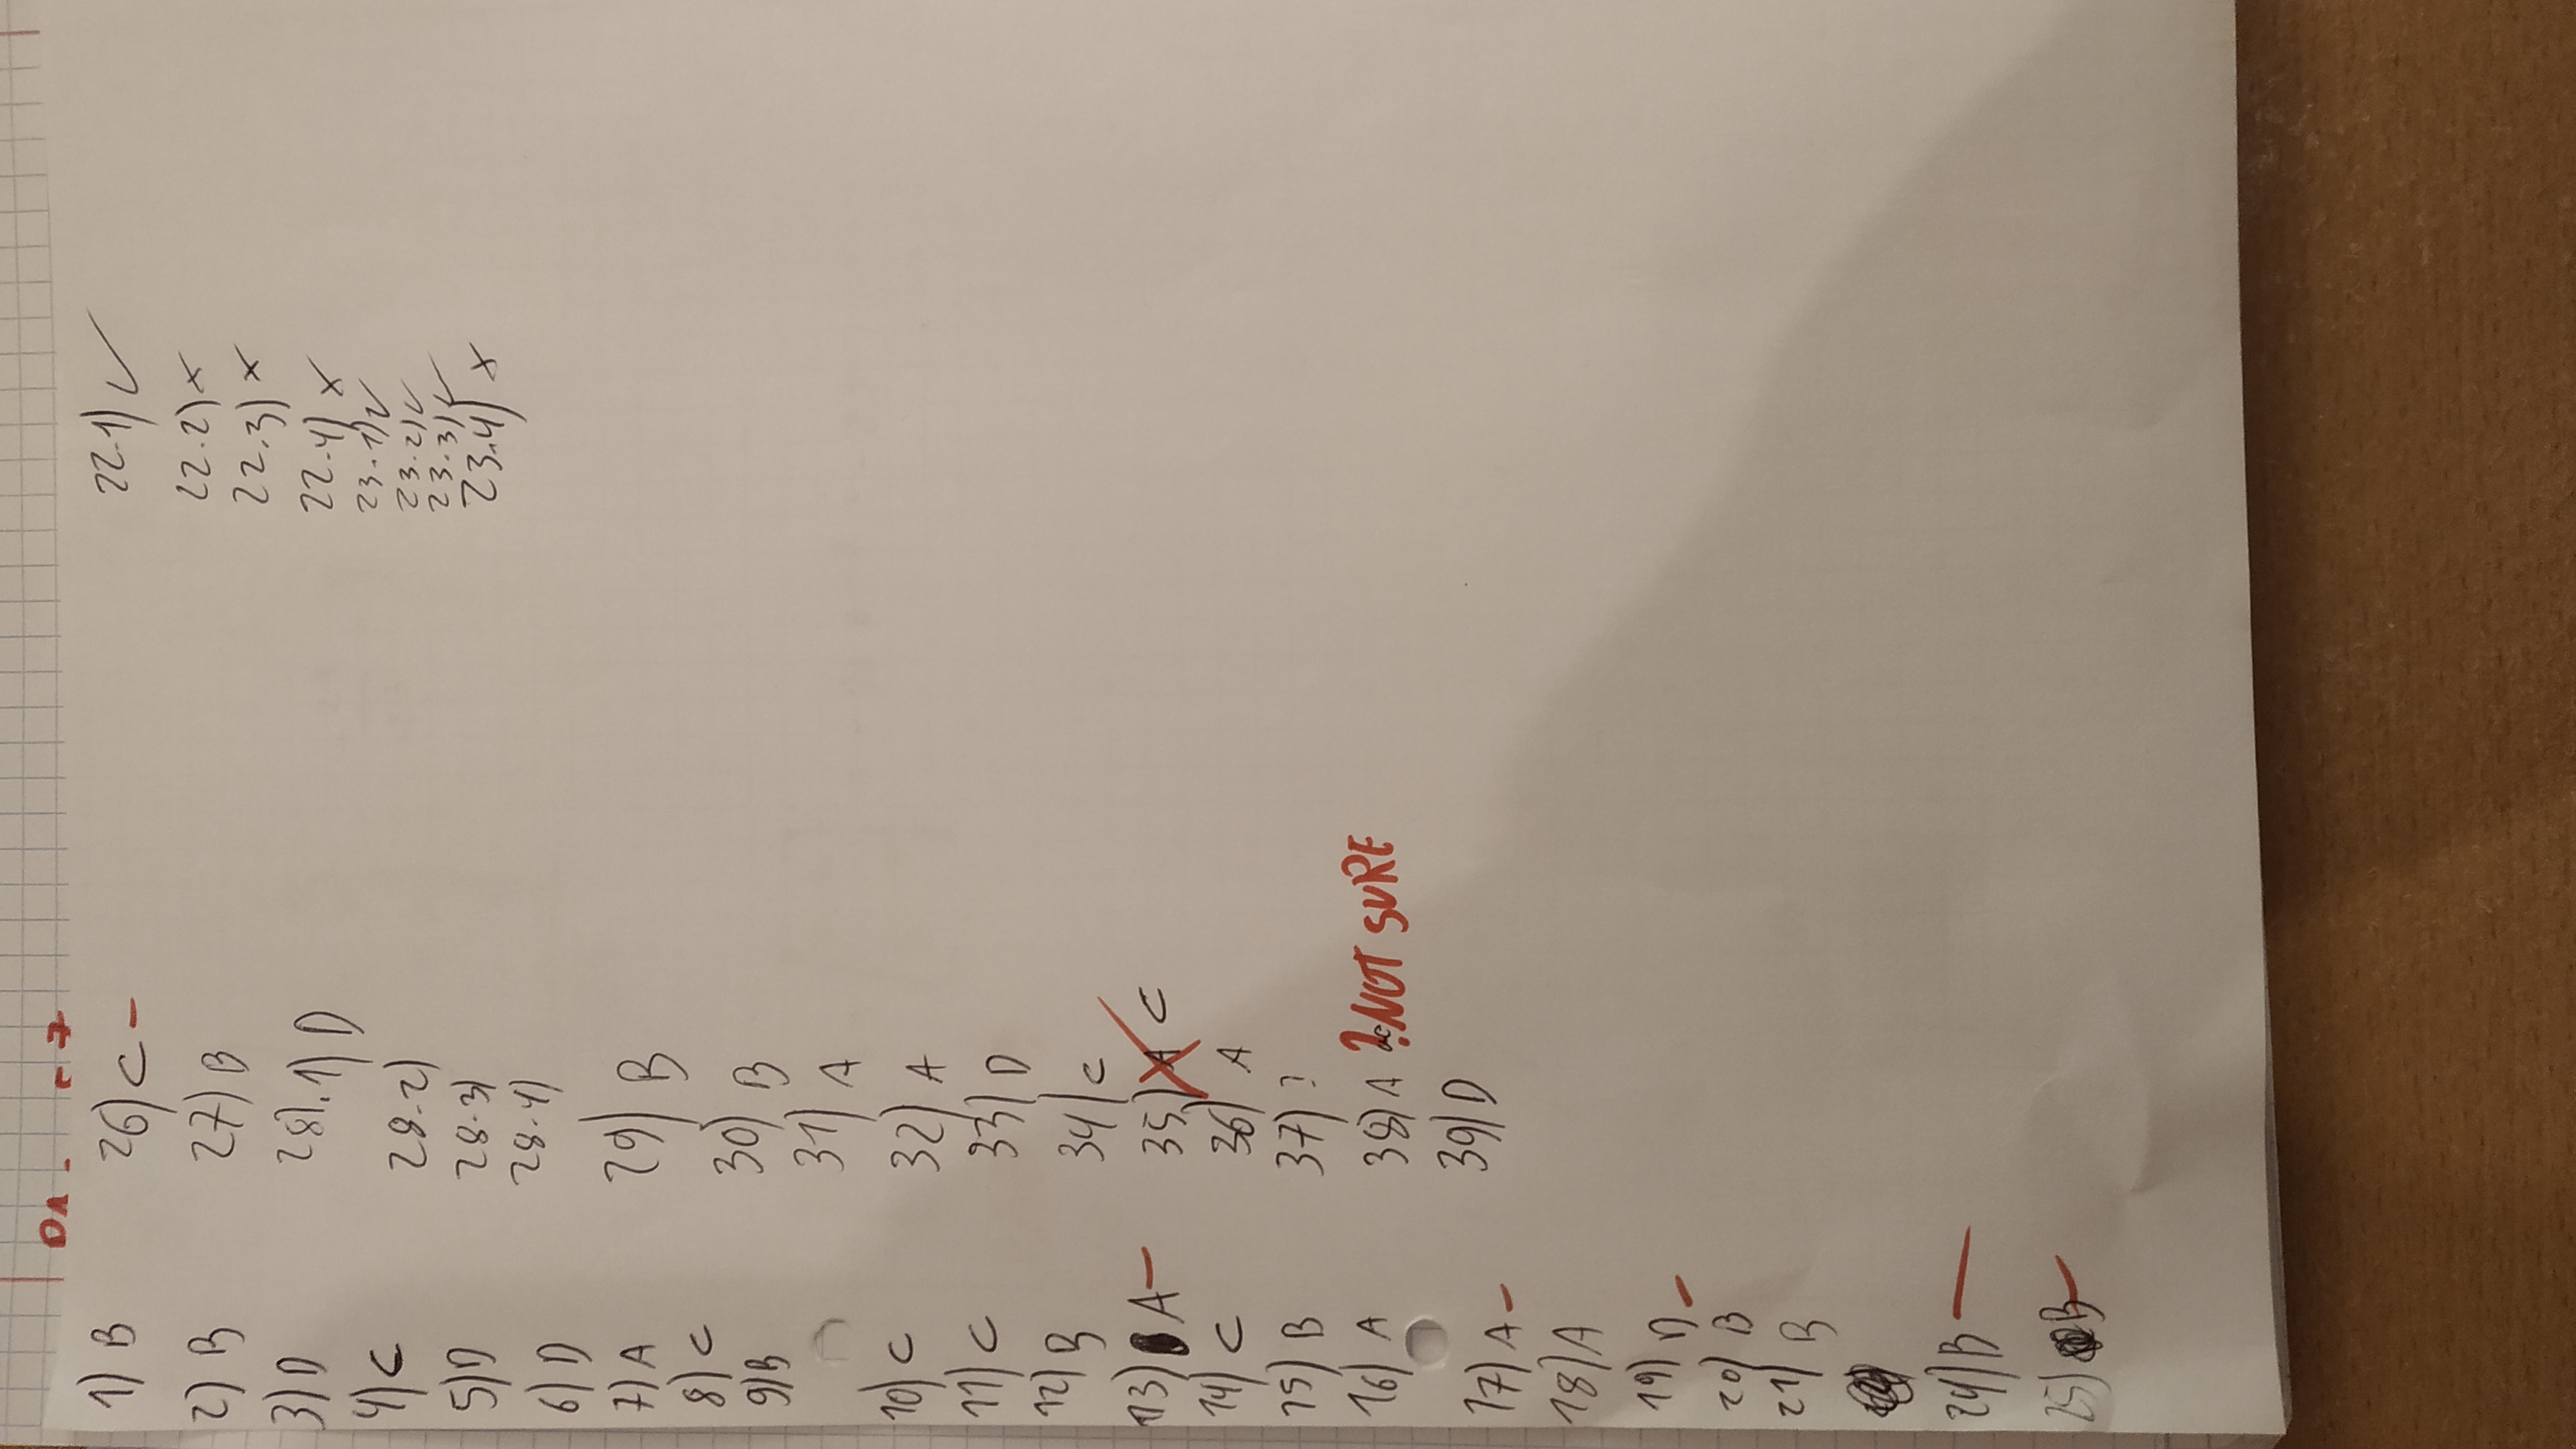 1) B
2) B
3) D
4) C
5) D
6) D
7) A
8) C
9) B
10) C
11) C
12) B
13) A -
14) C
15) B
16) A
17) A -
18) A
19) D -
20) B
21) B
24) B -
25) B -
26) C -
27) B
28).1) D
28.2)
28.3)
28.4)
29) B
30) B
31) A
32) A
33) D
34) C
35) A C
36) A
37) ?
38) A ? NOT SURE
39) D
22.1) ✓
22.2) ×
22.3) ×
22.4) ×
23.1) ✓
23.2) ✓
23.3) ✓
23.4) ×